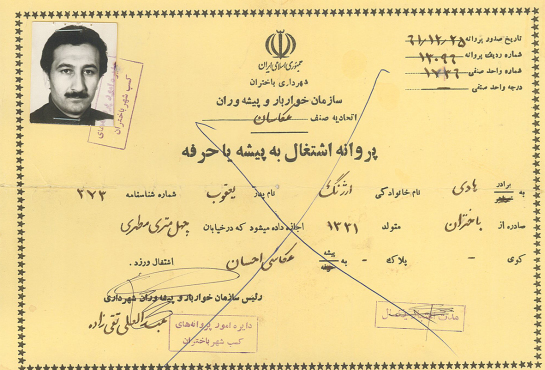 جمهوری اسلامی ایران
شهرداری باختران
سازمان خواربار و پیشه وران
اتحادیه صنف عکاسان
تاریخ صدور پروانه ۶۱/۱۲/۲۵
شماره ردیف پروانه ۱۲۰۹۶
شماره واحد صنفی ۱۷۳۶
درجه واحد صنفی
پروانه اشتغال به پیشه یا حرفه
به برادر هادی نام خانوادگی ارژنگ نام پدر یعقوب شماره شناسنامه ۲۷۳
صادره از باختران متولد ۱۳۲۱ اجازه داده میشود که در خیابان چهل متری مطهری
کوی - پلاک - به پیشه عکاسی احسان اشتغال ورزد.
رئیس سازمان خواربار و پیشه وران شهرداری
تقی زاده
دایره امور پروانه‌های
کسب شهر باختران